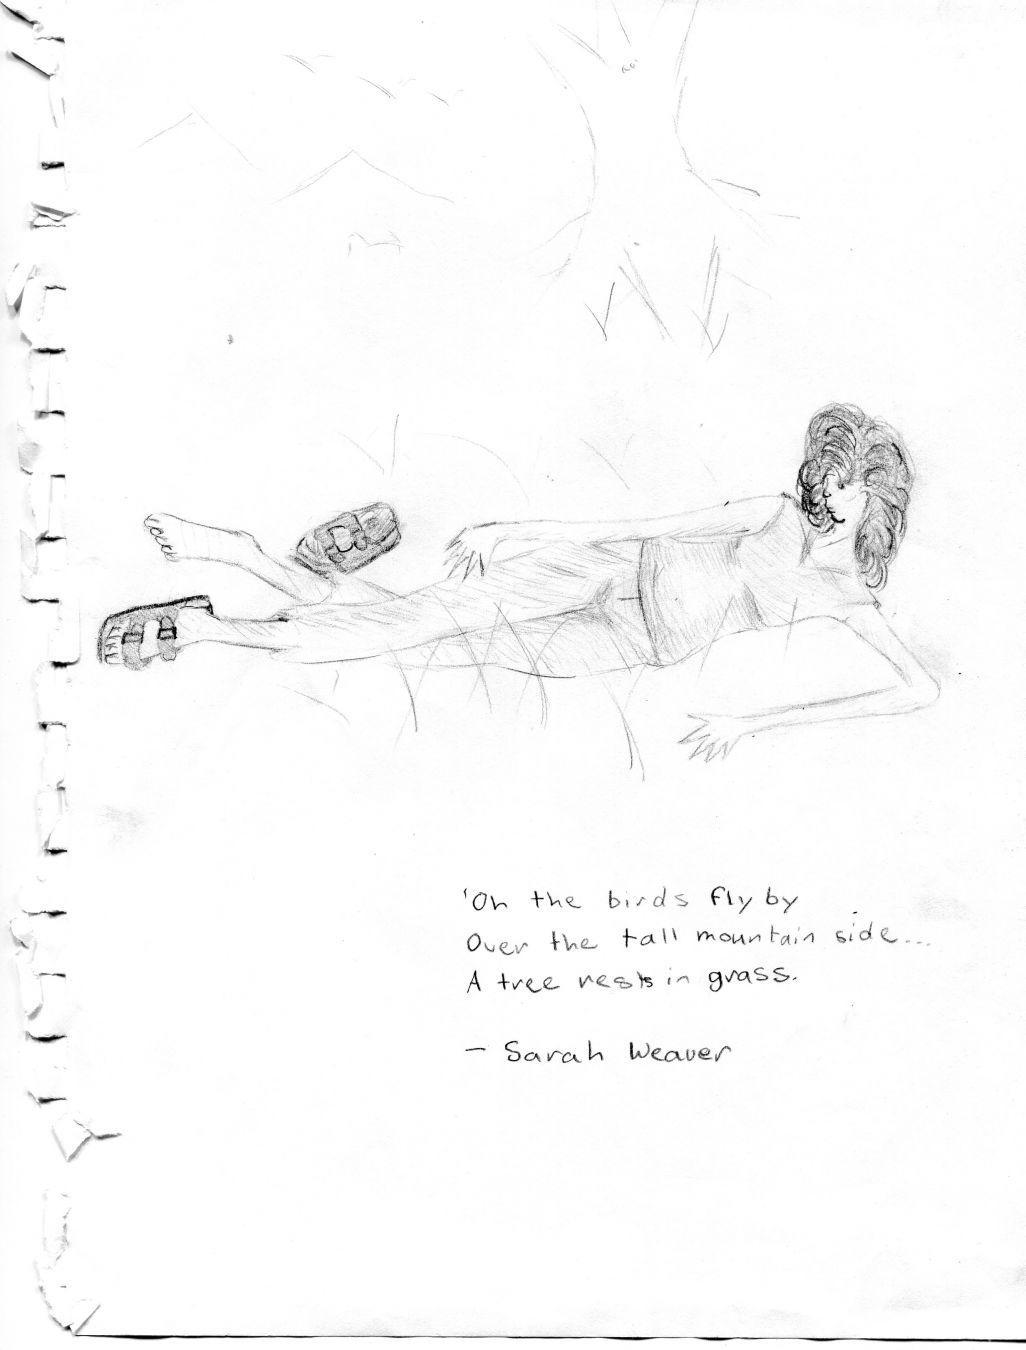 'Oh the birds fly by
Over the tall mountain side...
A tree rests in grass.
— Sarah Weaver